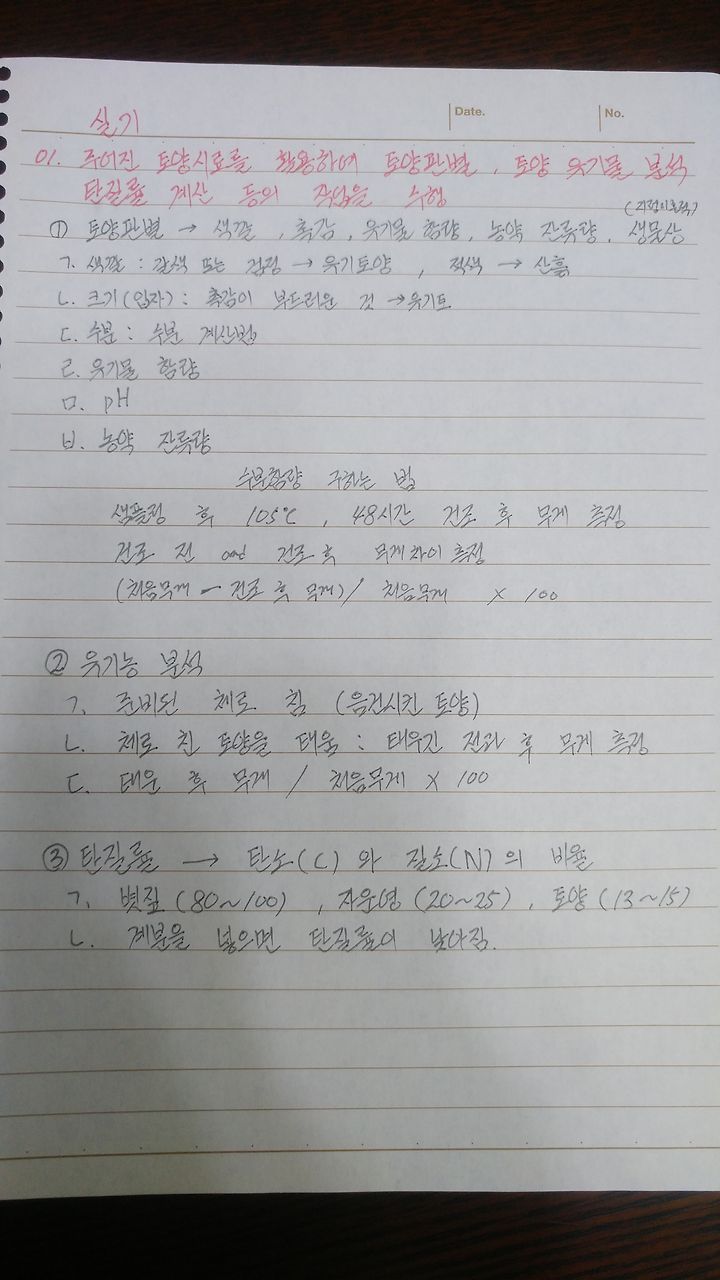 Date. No.
실기
01. 주어진 토양시료를 활용하여 토양판별, 토양 유기물 분석
탄질률 계산 등의 작업을 수행
(지렁이흔적)
① 토양판별 → 색깔, 촉감, 유기물 함량, 농약 잔류량, 생물상
ㄱ. 색깔 : 갈색 또는 검정 → 유기토양, 적색 → 산흙
ㄴ. 크기(입자) : 촉감이 부드러운 것 → 유기토
ㄷ. 수분 : 수분 계산법
ㄹ. 유기물 함량
ㅁ. pH
ㅂ. 농약 잔류량
수분함량 구하는 법
샘플링 후 105℃, 48시간 건조 후 무게 측정
건조 전 and 건조 후 무게차이 측정
(처음무게 - 건조 후 무게) / 처음무게 × 100
② 유기능 분석
ㄱ. 준비된 체로 침 (음건시킨 토양)
ㄴ. 체로 친 토양을 태움 : 태우기 전과 후 무게 측정
ㄷ. 태운 후 무게 / 처음무게 × 100
③ 탄질률 → 탄소(C) 와 질소(N)의 비율
ㄱ. 볏짚 (80~100), 자운영 (20~25), 토양 (13~15)
ㄴ. 계분을 넣으면 탄질률이 낮아짐.